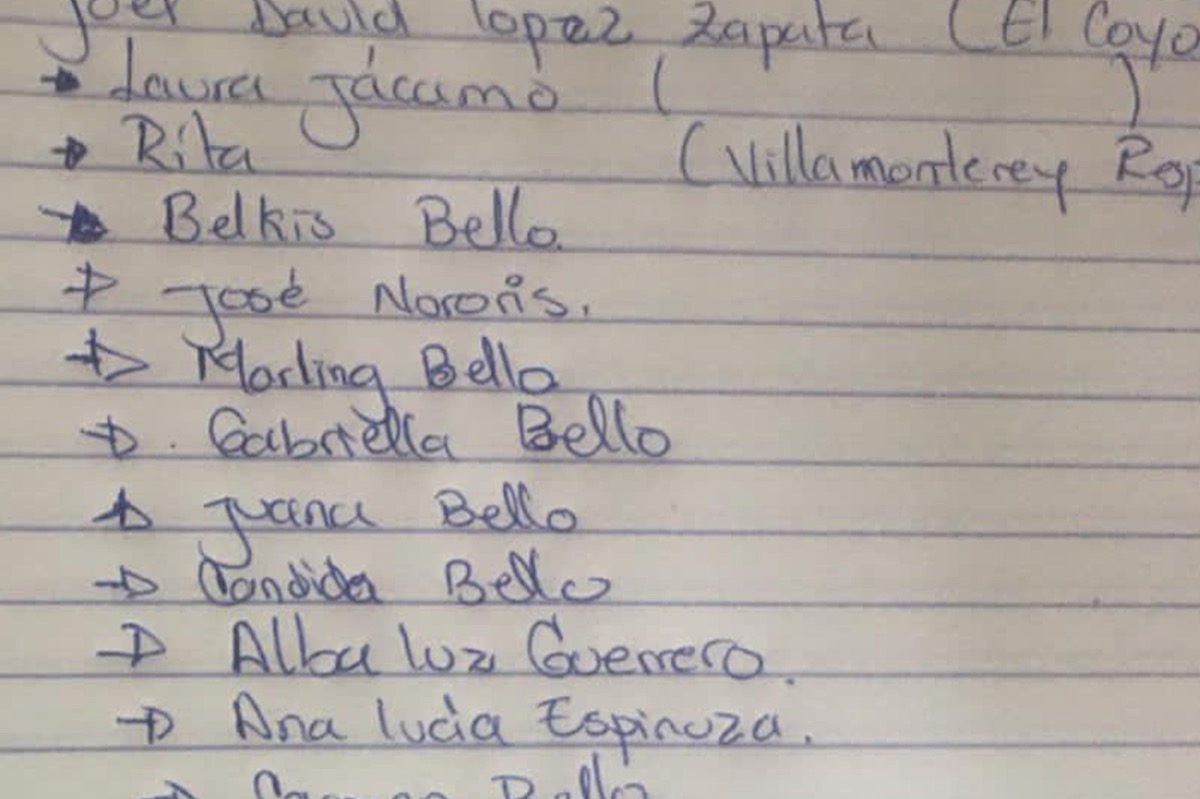 Joel David lopez Zapata (El Coyo
→ Laura Jácamo ( )
→ Rita (Villamonterey Resp
→ Belkis Bello.
→ José Noroñs.
→ Marling Bello
→ Gabriella Bello
→ Juana Bello
→ Candida Bello
→ Alba luz Guerrero.
→ Ana lucia Espinoza.
→ Carmen Bello